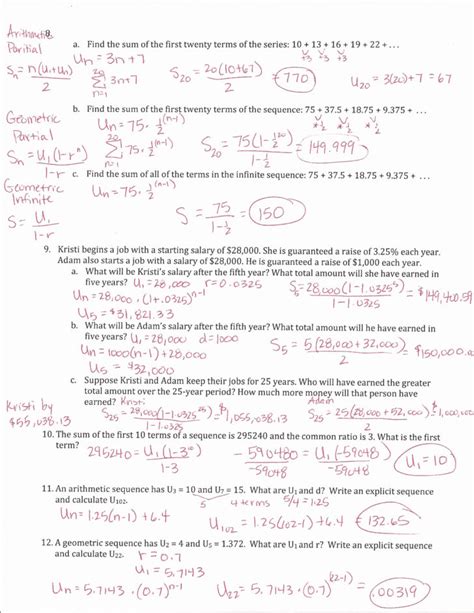 Arithmetic
8.
Partial
Sn = n(U1+Un)
2
a. Find the sum of the first twenty terms of the series: 10 + 13 + 16 + 19 + 22 + ...
+3 +3 +3 +3
Un = 3n+7
20
Σ 3n+7
n=1
S20 = 20(10+67) = 770
2
U20 = 3(20)+7 = 67
b. Find the sum of the first twenty terms of the sequence: 75 + 37.5 + 18.75 + 9.375 + ...
Geometric
Partial
Sn = U1(1-r^n)
1-r
Un = 75 · ½^(n-1)
20
Σ 75 · ½^(n-1)
n=1
S20 = 75(1-½^20) = 149.999
1-½
c. Find the sum of all of the terms in the infinite sequence: 75 + 37.5 + 18.75 + 9.375 + ...
Geometric
Infinite
S = U1
1-r
Un = 75 · ½^(n-1)
S = 75 = 150
1-½
9. Kristi begins a job with a starting salary of $28,000. She is guaranteed a raise of 3.25% each year.
Adam also starts a job with a salary of $28,000. He is guaranteed a raise of $1,000 each year.
a. What will be Kristi's salary after the fifth year? What total amount will she have earned in
five years? U1 = 28,000 r = 0.0325
Un = 28,000 · (1+.0325)^n-1
U5 = $31,821.33
S5 = 28,000(1-1.0325^5) =
1-1.0325
b. What will be Adam's salary after the fifth year? What total amount will he have earned in
five years? U1 = 28,000 d = 1000
Un = 1000(n-1) + 28,000
U5 = $32,000
S5 = 5(28,000 + 32,000) =
2
$150,000.
c. Suppose Kristi and Adam keep their jobs for 25 years. Who will have earned the greater
total amount over the 25-year period? How much more money will that person have
earned? Kristi
Adam
Kristi by
$55,038.13
S25 = 28,000(1-1.0325^25) = $1,055,038.13
1-1.0325
S25 = 25(28,000 + 52,000) =
2
10. The sum of the first 10 terms of a sequence is 295240 and the common ratio is 3. What is the first
term?
295240 = U1(1-3^10)
1-3
-590480 = U1(-59048)
-59048 -59048
U1 = 10
11. An arithmetic sequence has U3 = 10 and U7 = 15. What are U1 and d? Write an explicit sequence
and calculate U102.
5
4 terms 5/4 = 1.25
Un = 1.25(n-1) + 6.4
U102 = 1.25(102-1) + 6.4 = 132.65
12. A geometric sequence has U2 = 4 and U5 = 1.372. What are U1 and r? Write an explicit sequence
and calculate U22.
r = 0.7
U1 = 5.7143
Un = 5.7143 · (0.7)^(n-1)
U22 = 5.7143 · (0.7)^(22-1) = .00319